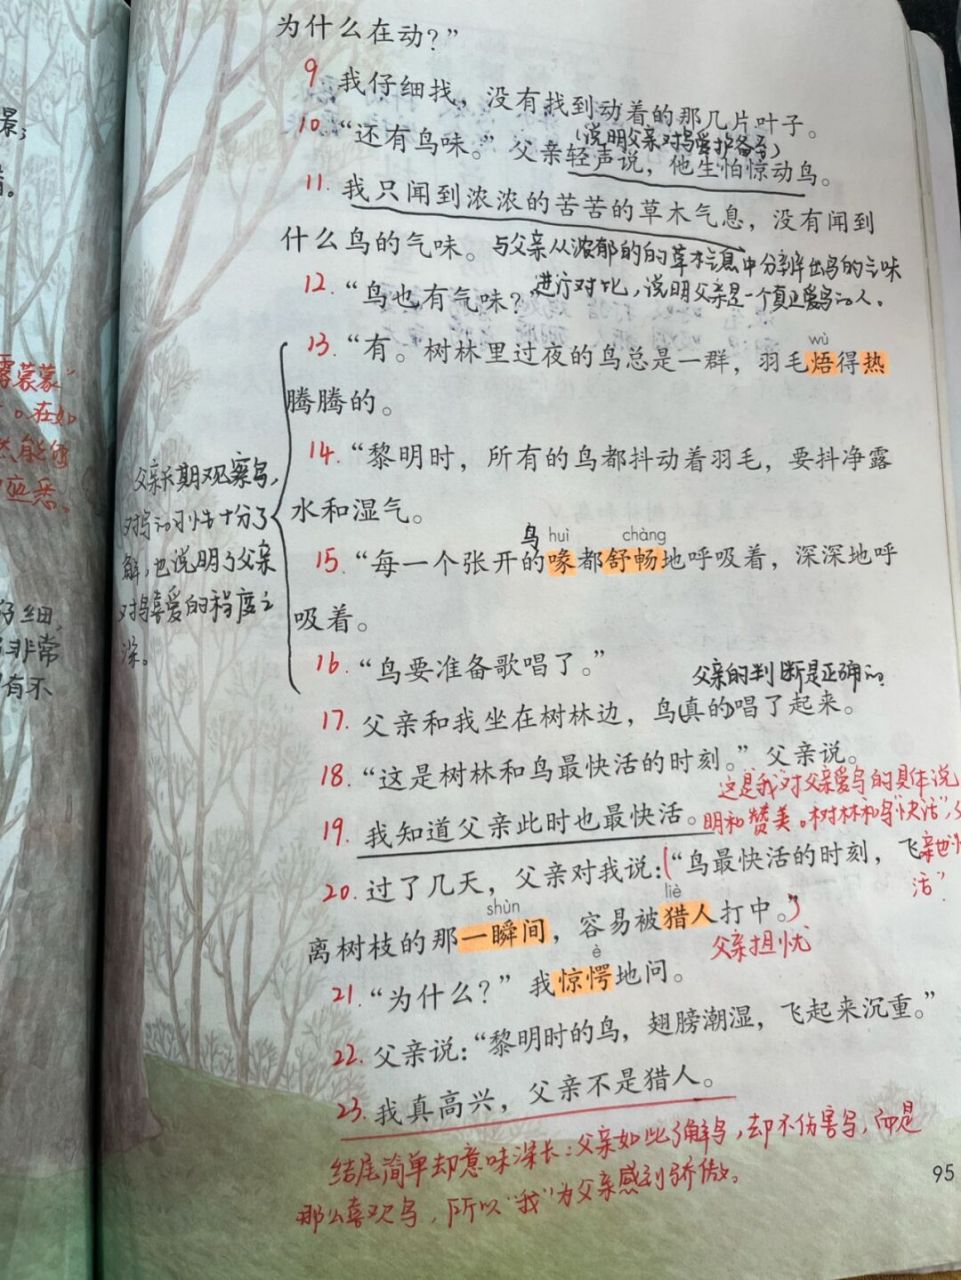 为什么在动？”
9. 我仔细找，没有找到动着的那几片叶子。
(说明父亲对鸟爱护备至)
10. “还有鸟味。”父亲轻声说，他生怕惊动鸟。
11. 我只闻到浓浓的苦苦的草木气息，没有闻到
什么鸟的气味。
与父亲从浓郁的的草木气息中分辨出鸟的气味
进行对比，说明父亲是一个真正爱鸟的人。
12. “鸟也有气味？
wù
13. “有。树林里过夜的鸟总是一群，羽毛焐得热
腾腾的。
14. “黎明时，所有的鸟都抖动着羽毛，要抖净露
水和湿气。
鸟 huì chàng
15. “每一个张开的喙都舒畅地呼吸着，深深地呼
吸着。
16. “鸟要准备歌唱了。”
父亲长期观察鸟，
对鸟的习性十分了
解，也说明了父亲
对鸟喜爱的程度之
深。
父亲的判断是正确的。
17. 父亲和我坐在树林边，鸟(真的)唱了起来。
18. “这是树林和鸟最快活的时刻。”父亲说。
这是“我”对父亲爱鸟的具体说
明和赞美。树林和鸟“快活”，父
亲也“快
活”
19. 我知道父亲此时也最快活。
20. 过了几天，父亲对我说：(“鸟最快活的时刻，飞
shùn liè
离树枝的那一瞬间，容易被猎人打中。”)
父亲担忧
è
21. “为什么？”我惊愕地问。
22. 父亲说：“黎明时的鸟，翅膀潮湿，飞起来沉重。”
23. 我真高兴，父亲不是猎人。
结尾简单却意味深长：父亲如此了解鸟，却不伤害鸟，而是
那么喜欢鸟，所以“我”为父亲感到骄傲。
95